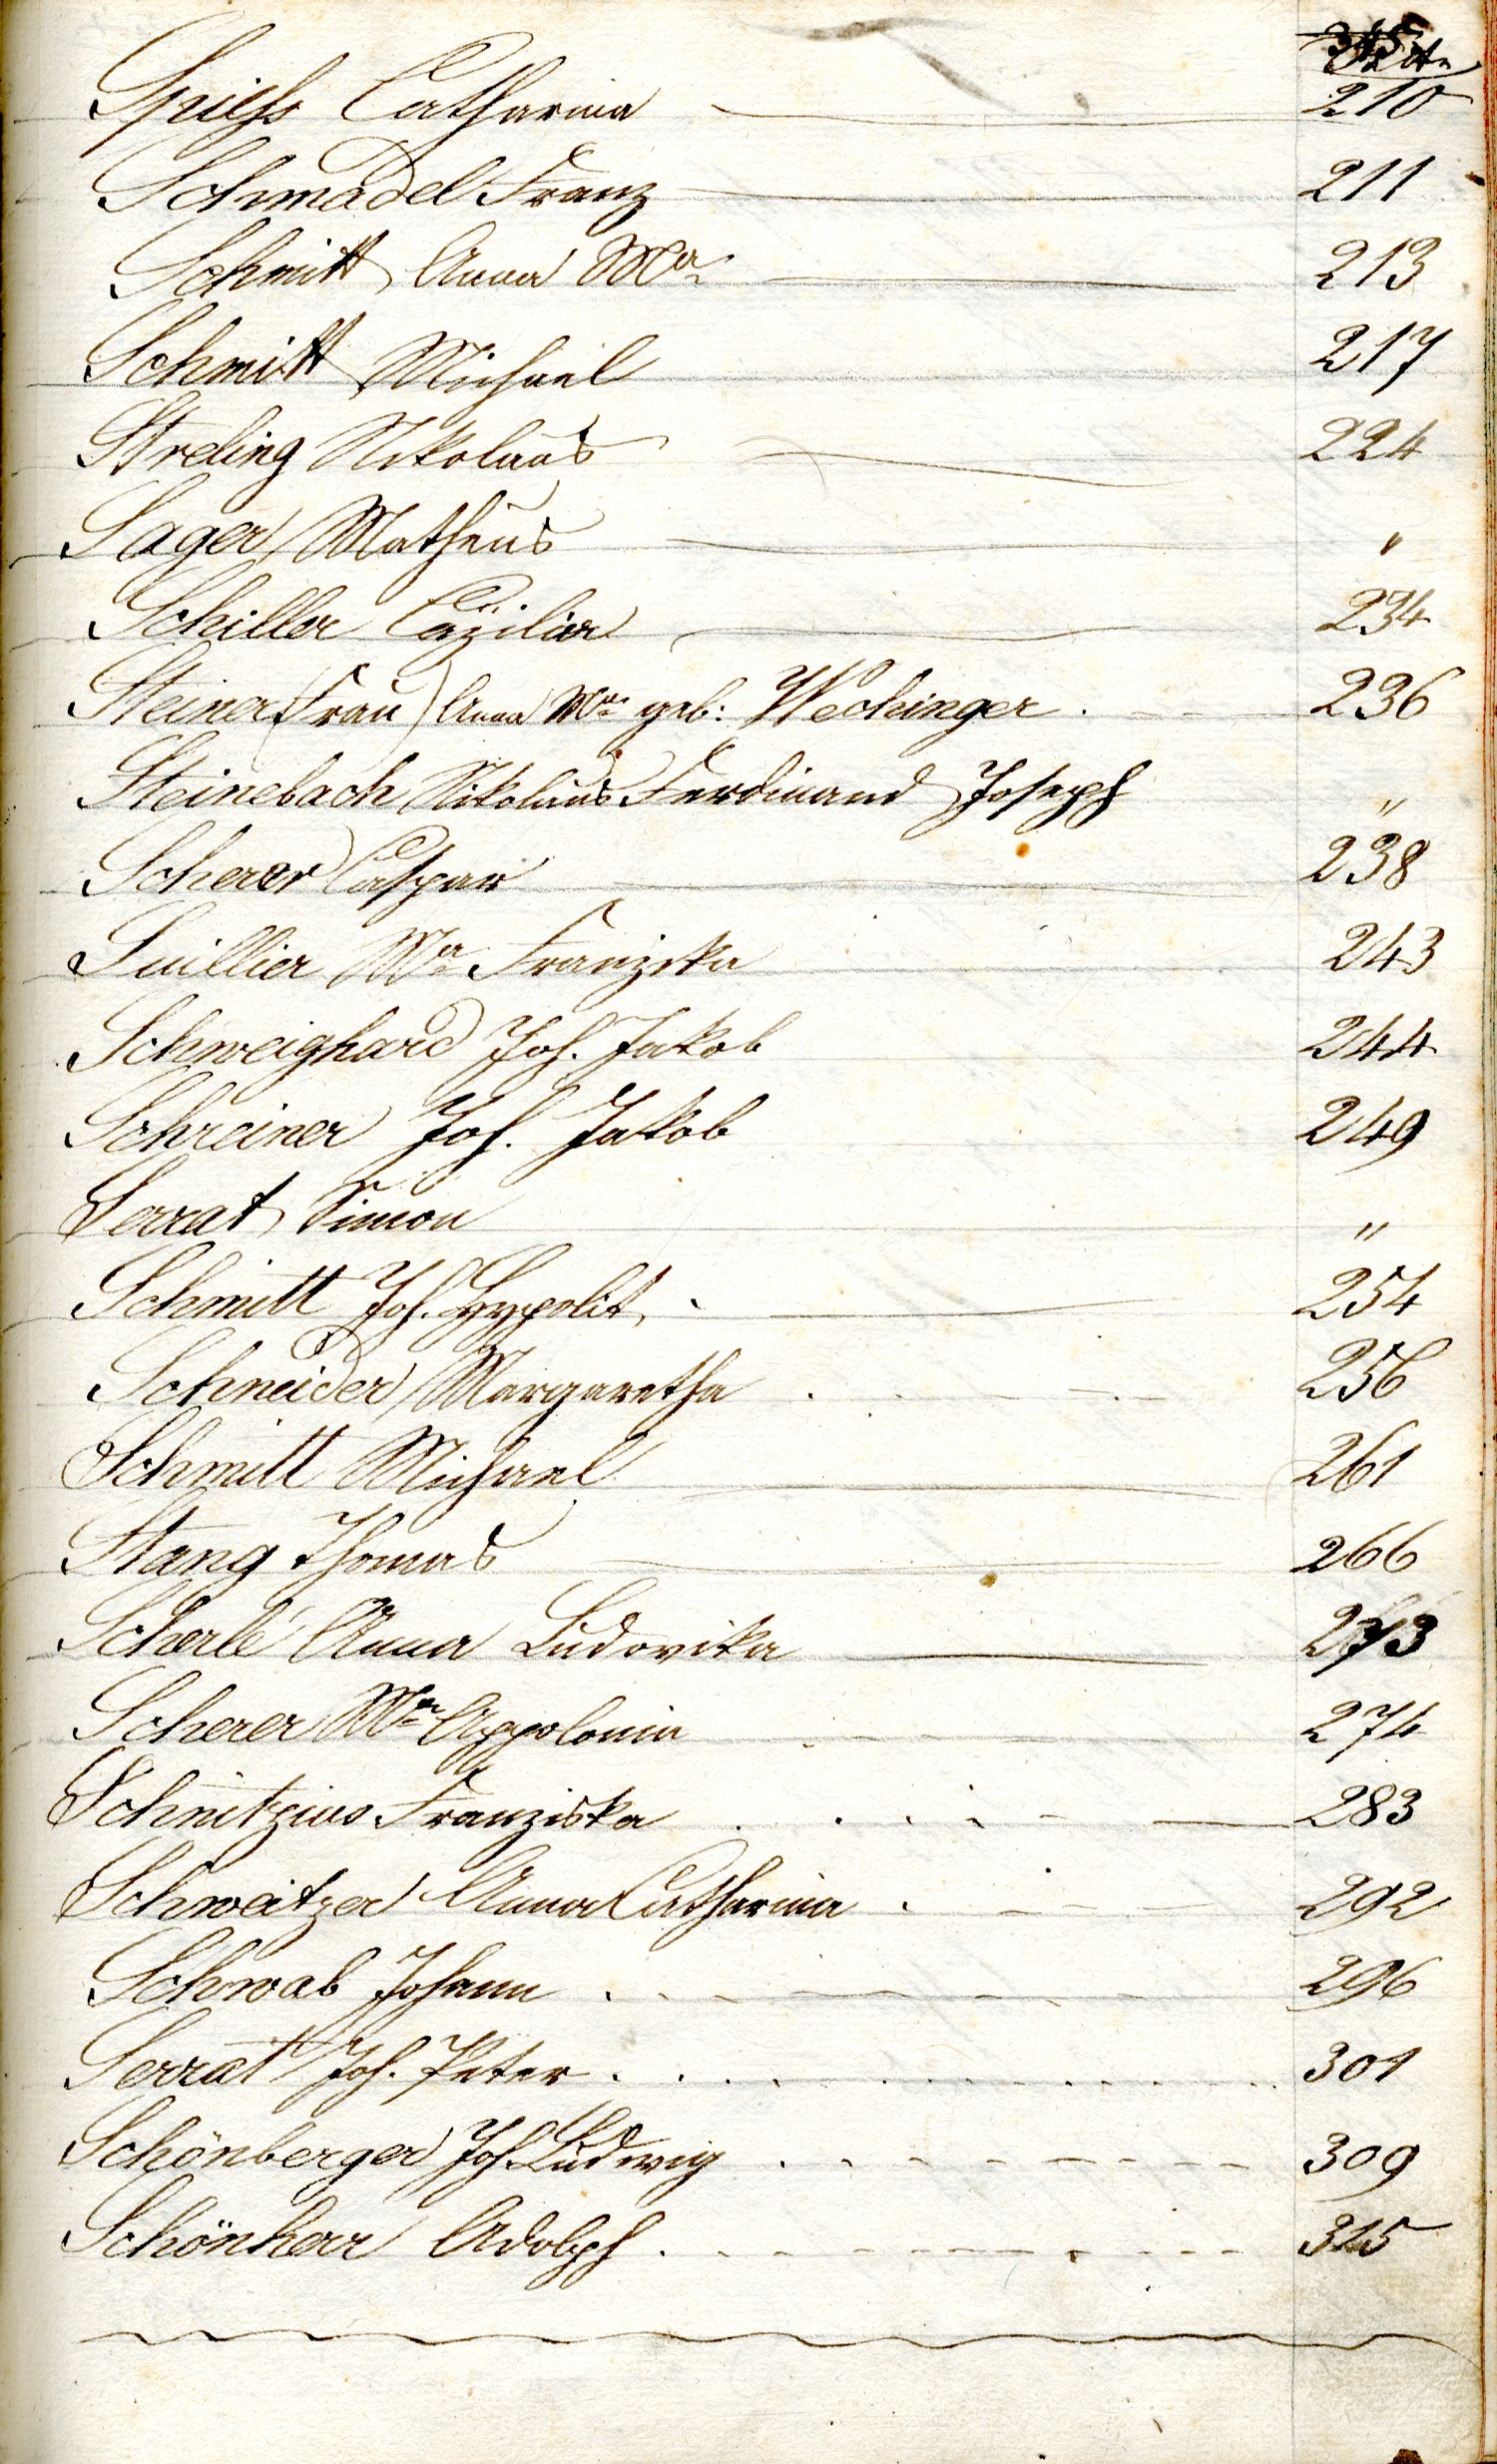 Spiehs Catharina 210
Schmadel Franz 211
Schmitt Anna Ma 213
Schmitt Michael 217
Streling Nikolaus 224
Sager Matheus "
Schiller Cäzilia 234
Steiner (Frau) Anna Ma geb: Wechinger. 236
Steinebach Nikolaus Ferdinand Joseph "
Scherer Caspar 238
Suillier Ma Franziska 243
Schweighard Joh. Jakob 244
Schreiner Joh. Jakob 249
Serrat Simon "
Schmitt Joh. Hypolit. 254
Schneider Margaretha 256
Schmitt Michael 261
Stang Thomas 266
Scherlé Anna Ludovika 273
Scherer Ma Appolonia 274
Schnitzius Franziska 283
Schweitzer Anna Catharina 292
Schwab Johann 296
Serrat Joh. Peter 301
Schönberger Joh. Ludwig 309
Schönherr Adolph. 315